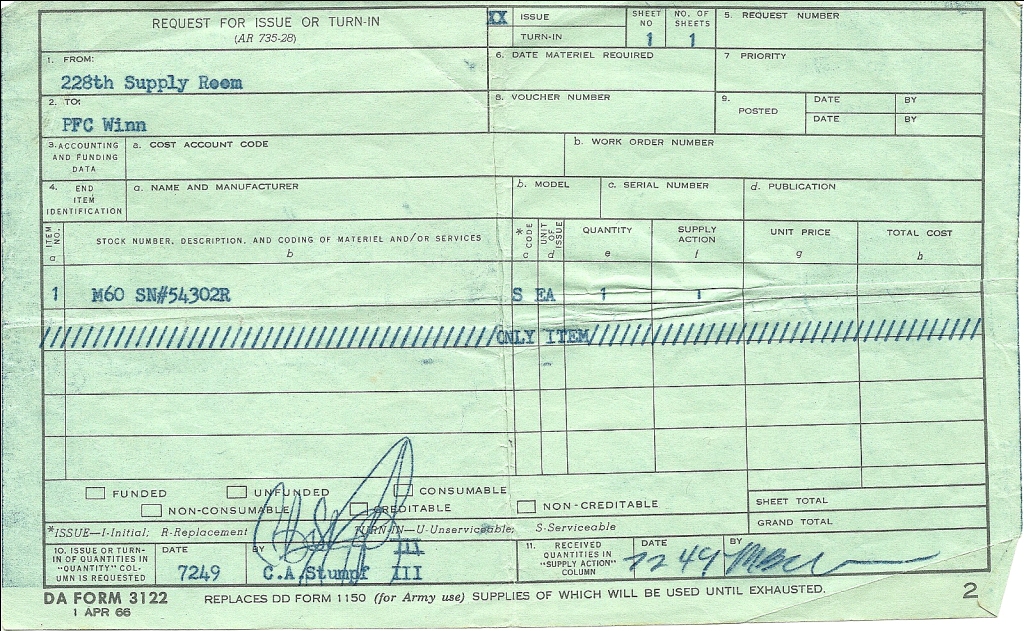 REQUEST FOR ISSUE OR TURN-IN
(AR 735-28)
XX ISSUE
TURN-IN
SHEET NO 1
NO. OF SHEETS 1
5. REQUEST NUMBER
1. FROM:
228th Supply Room
6. DATE MATERIEL REQUIRED
7 PRIORITY
2. TO:
PFC Winn
8. VOUCHER NUMBER
9. POSTED
DATE BY
DATE BY
3. ACCOUNTING AND FUNDING DATA
a. COST ACCOUNT CODE
b. WORK ORDER NUMBER
4. END ITEM IDENTIFICATION
a. NAME AND MANUFACTURER
b. MODEL
c. SERIAL NUMBER
d. PUBLICATION
ITEM NO. a
STOCK NUMBER, DESCRIPTION, AND CODING OF MATERIEL AND/OR SERVICES b
* CODE c
UNIT OF ISSUE d
QUANTITY e
SUPPLY ACTION f
UNIT PRICE g
TOTAL COST h
1 M60 SN#54302R S EA 1 1
////////////////////////////////////ONLY ITEM//////////////////////////////
FUNDED UNFUNDED CONSUMABLE
NON-CONSUMABLE CREDITABLE NON-CREDITABLE
SHEET TOTAL
*ISSUE—I-Initial; R-Replacement TURN-IN—U-Unserviceable; S-Serviceable
GRAND TOTAL
10. ISSUE OR TURN-IN OF QUANTITIES IN "QUANTITY" COLUMN IS REQUESTED
DATE
7249
BY
III
C.A.Stumpf III
11. RECEIVED QUANTITIES IN "SUPPLY ACTION" COLUMN
DATE
7249
BY
DA FORM 3122
1 APR 66
REPLACES DD FORM 1150 (for Army use) SUPPLIES OF WHICH WILL BE USED UNTIL EXHAUSTED.
2